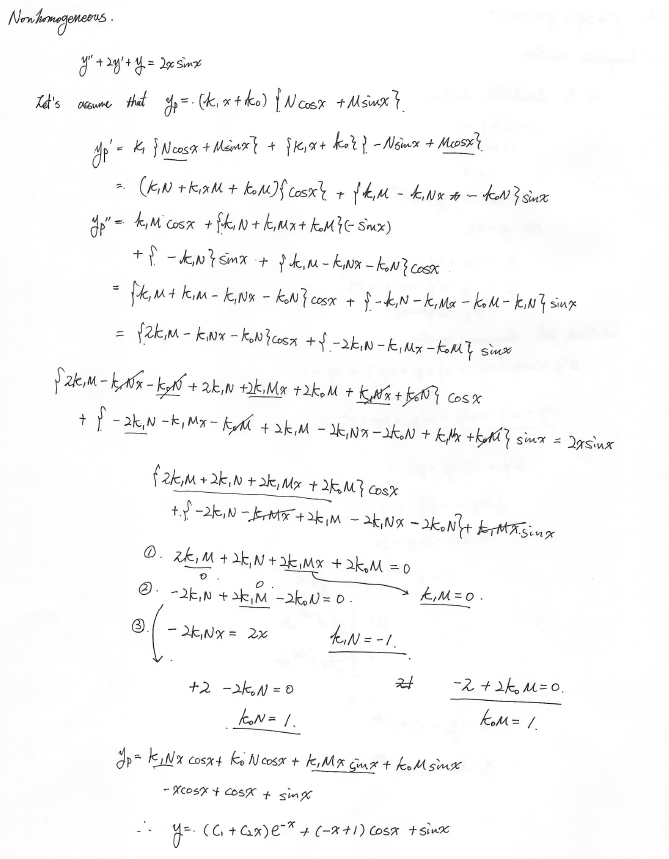 Nonhomogeneous.
y'' + 2y' + y = 2x sinx
Let's assume that yp = (k₁x + k₀) {N cosx + M sinx}.
yp' = k₁ {N cosx + M sinx} + {k₁x + k₀} {-N sinx + M cosx}
= (k₁N + k₁xM + k₀M) {cosx} + {k₁M - k₁Nx - k₀N} sinx
yp'' = k₁M cosx + {k₁N + k₁Mx + k₀M} (-sinx)
+ {-k₁N} sinx + {k₁M - k₁Nx - k₀N} cosx
= {k₁M + k₁M - k₁Nx - k₀N} cosx + {-k₁N - k₁Mx - k₀M - k₁N} sinx
= {2k₁M - k₁Nx - k₀N} cosx + {-2k₁N - k₁Mx - k₀M} sinx
{2k₁M - k₁Nx - k₀N + 2k₁N + 2k₁Mx + 2k₀M + k₁Nx + k₀N} cosx
+ {-2k₁N - k₁Mx - k₀M + 2k₁M - 2k₁Nx - 2k₀N + k₁Mx + k₀M} sinx = 2x sinx
{2k₁M + 2k₁N + 2k₁Mx + 2k₀M} cosx
+ {-2k₁N - k₁Mx + 2k₁M - 2k₁Nx - 2k₀N} + k₁Mx sinx
①. 2k₁M + 2k₁N + 2k₁Mx + 2k₀M = 0
0 0
②. -2k₁N + 2k₁M - 2k₀N = 0. k₁M = 0.
③ - 2k₁Nx = 2x k₁N = -1.
+2 - 2k₀N = 0 -2 + 2k₀M = 0.
k₀N = 1. k₀M = 1.
yp = k₁Nx cosx + k₀N cosx + k₁Mx sinx + k₀M sinx
-x cosx + cosx + sinx
∴ y = (C₁ + C₂x)e⁻ˣ + (-x+1) cosx + sinx